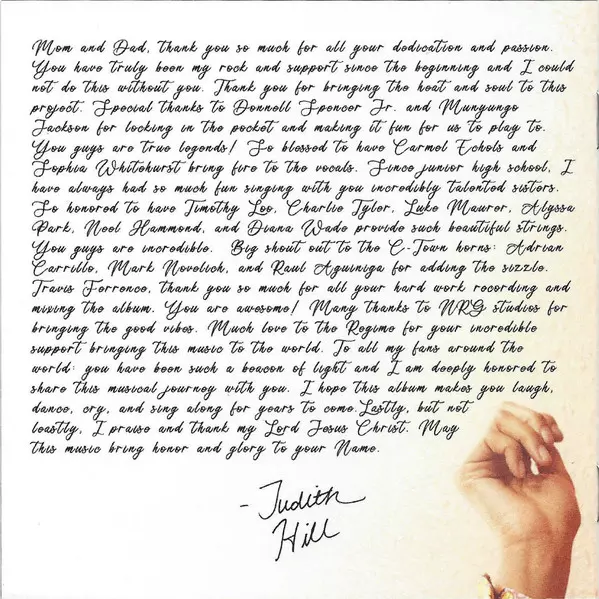 Mom and Dad, thank you so much for all your dedication and passion.
You have truly been my rock and support since the beginning and I could
not do this without you. Thank you for bringing the heat and soul to this
project. Special thanks to Donnell Spencer Jr. and Munyungo
Jackson for locking in the pocket and making it fun for us to play to.
You guys are true legends! So blessed to have Carmel Echols and
Sophia Whitehurst bring fire to the vocals. Since junior high school, I
have always had so much fun singing with you incredibly talented sisters.
So honored to have Timothy Loo, Charlie Tyler, Luke Maurer, Alyssa
Park, Neel Hammond, and Diana Wade provide such beautiful strings.
You guys are incredible. Big shout out to the C-Town horns: Adrian
Carrillo, Mark Novelich, and Raul Aguiniga for adding the sizzle.
Travis Ferrence, thank you so much for all your hard work recording and
mixing the album. You are awesome! Many thanks to NRG studios for
bringing the good vibes. Much love to the Regime for your incredible
support bringing this music to the world. To all my fans around the
world: you have been such a beacon of light and I am deeply honored to
share this musical journey with you. I hope this album makes you laugh,
dance, cry, and sing along for years to come.Lastly, but not
leastly, I praise and thank my Lord Jesus Christ. May
this music bring honor and glory to your Name.
- Judith
Hill